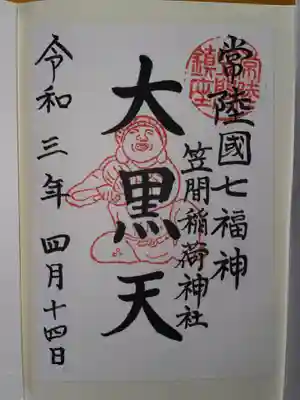 常陸國七福神
笠間稲荷神社
大黒天
令和三年 四月十四日